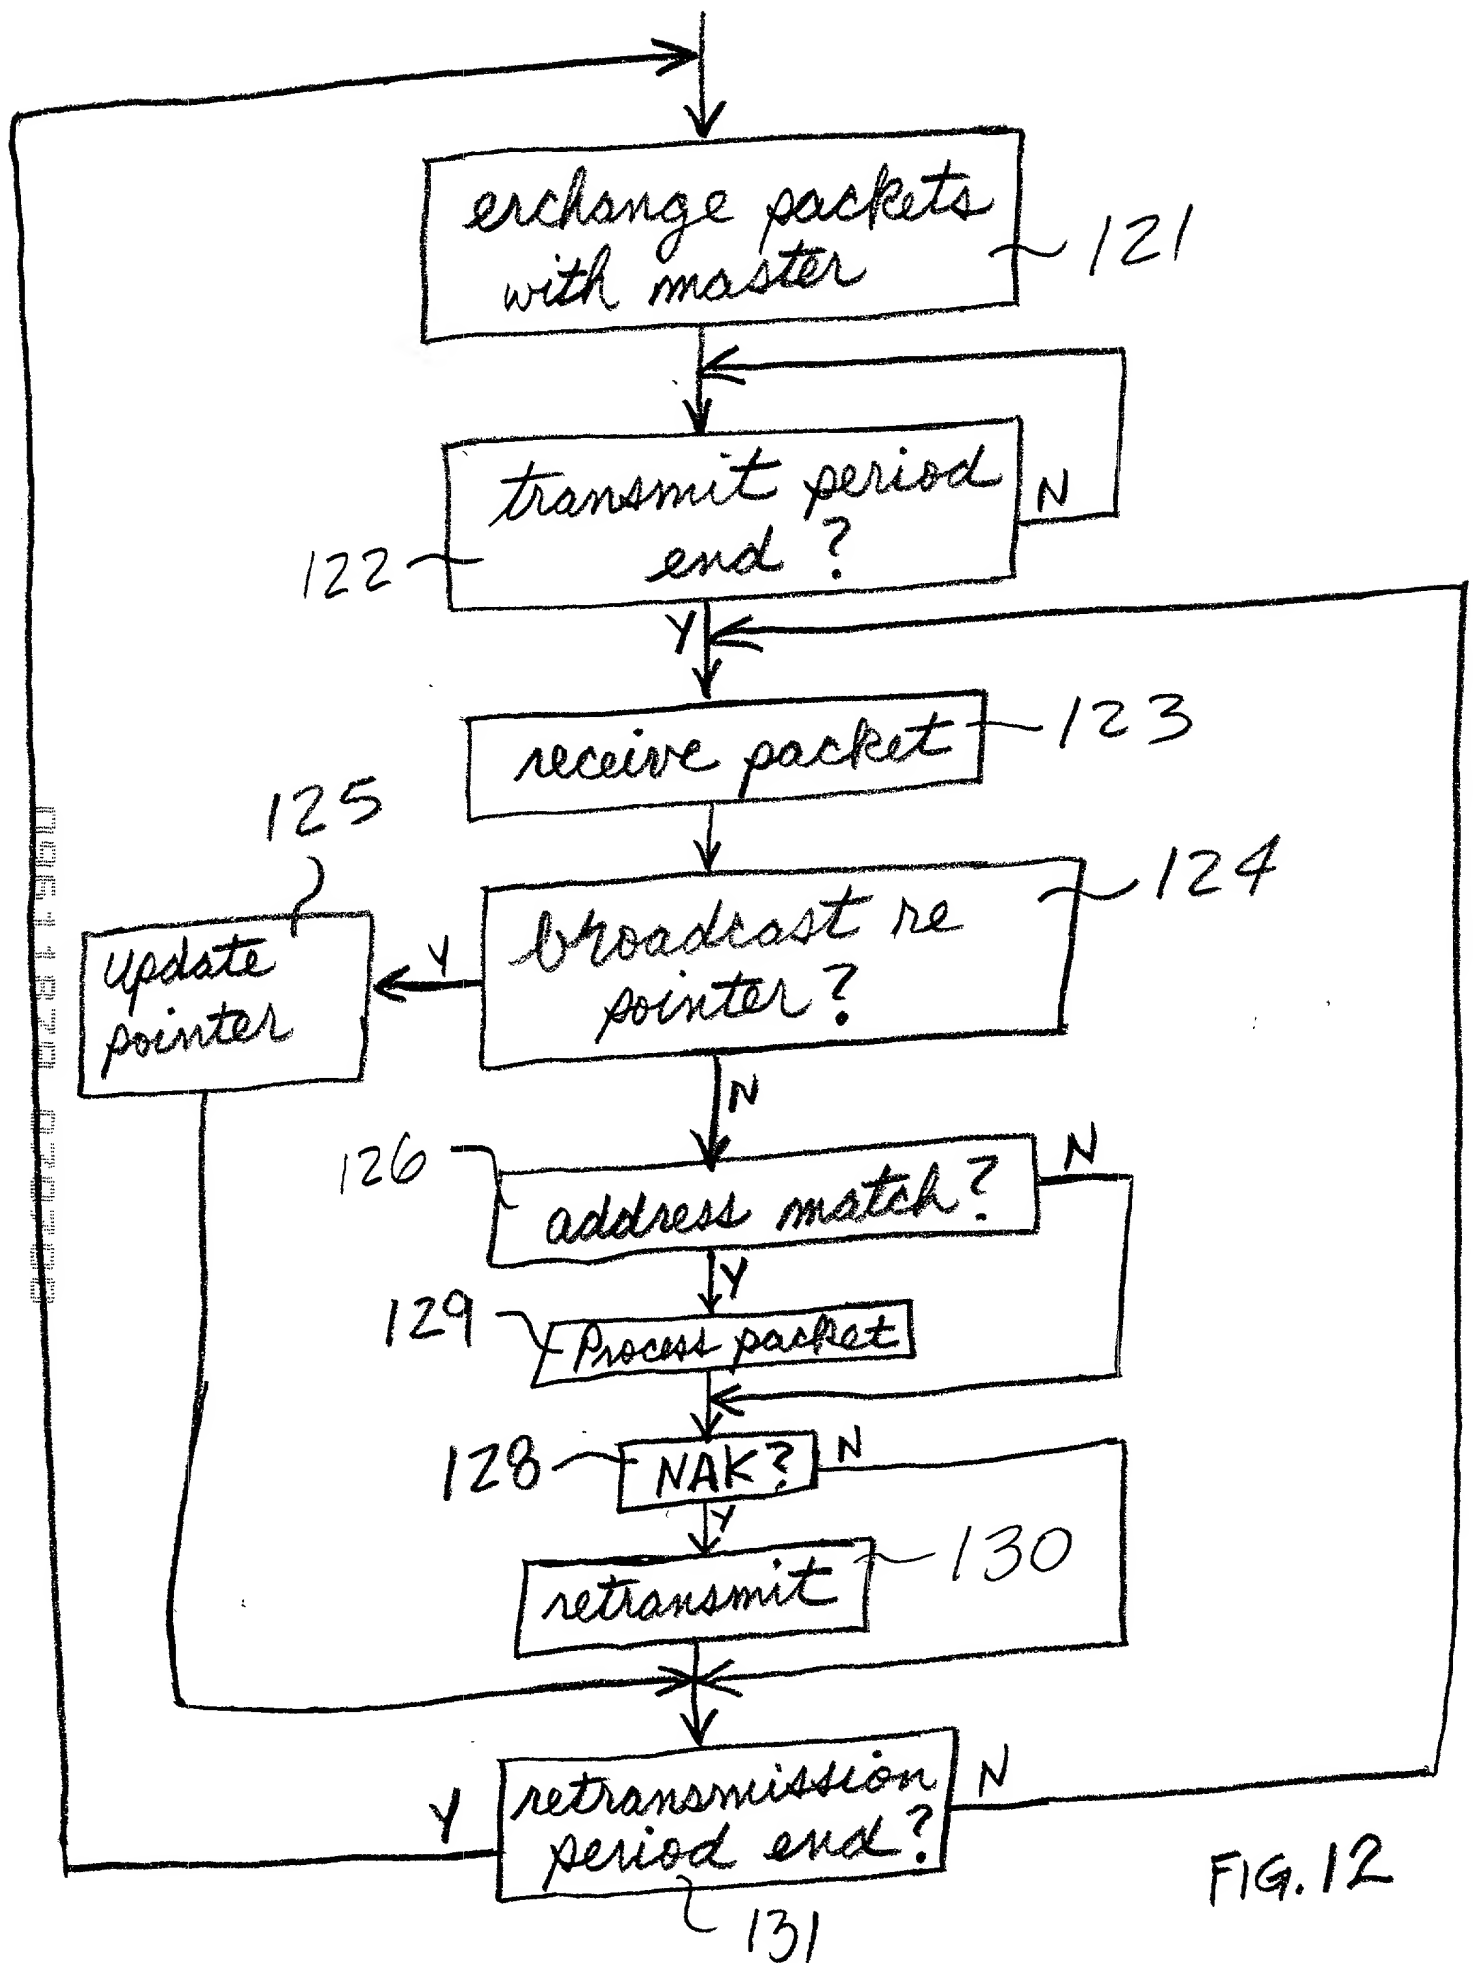 exchange packets
with master
121
N
transmit period
end ?
122
Y
receive packet
123
125
broadcast re
pointer?
124
Y
update
pointer
N
126
address match?
N
Y
129
Process packet
128
NAK?
N
Y
retransmit
130
retransmission
period end?
N
Y
131
FIG. 12